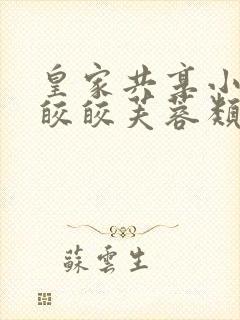 皇家共享小
皎皎芙蓉類
蘇雲生